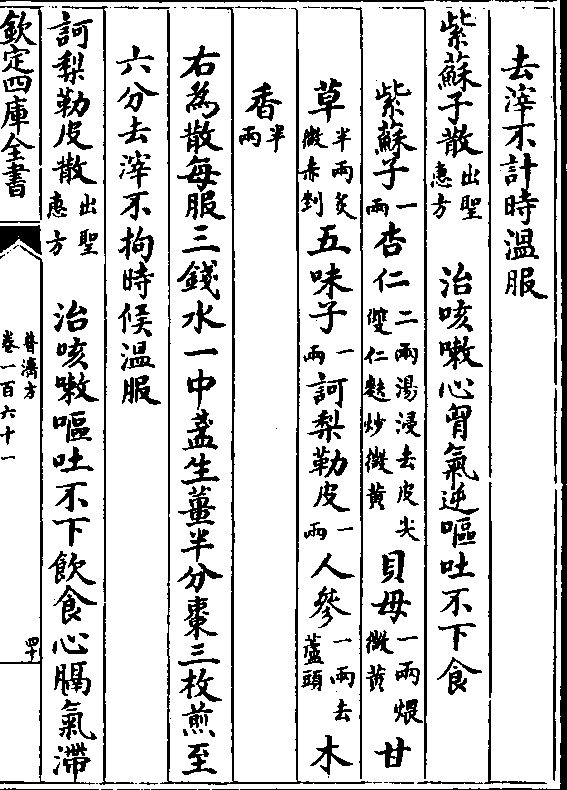 去滓不計時溫服
紫蘇子散出聖惠方　治咳嗽心胷氣逆嘔吐不下食
紫蘇子一兩杏仁二兩湯浸去皮尖雙仁麩炒微黄貝母一兩煨微黄甘
草半兩炙微赤剉五味子一兩訶梨勒皮一兩人參一兩去蘆頭木
香半兩
右為散每服三錢水一中盞生薑半分棗三枚煎至
六分去滓不拘時候溫服
訶梨勒皮散出聖惠方　治咳嗽嘔吐不下飲食心膈氣滯
欽定四庫全書　普濟方卷一百六十一　四十